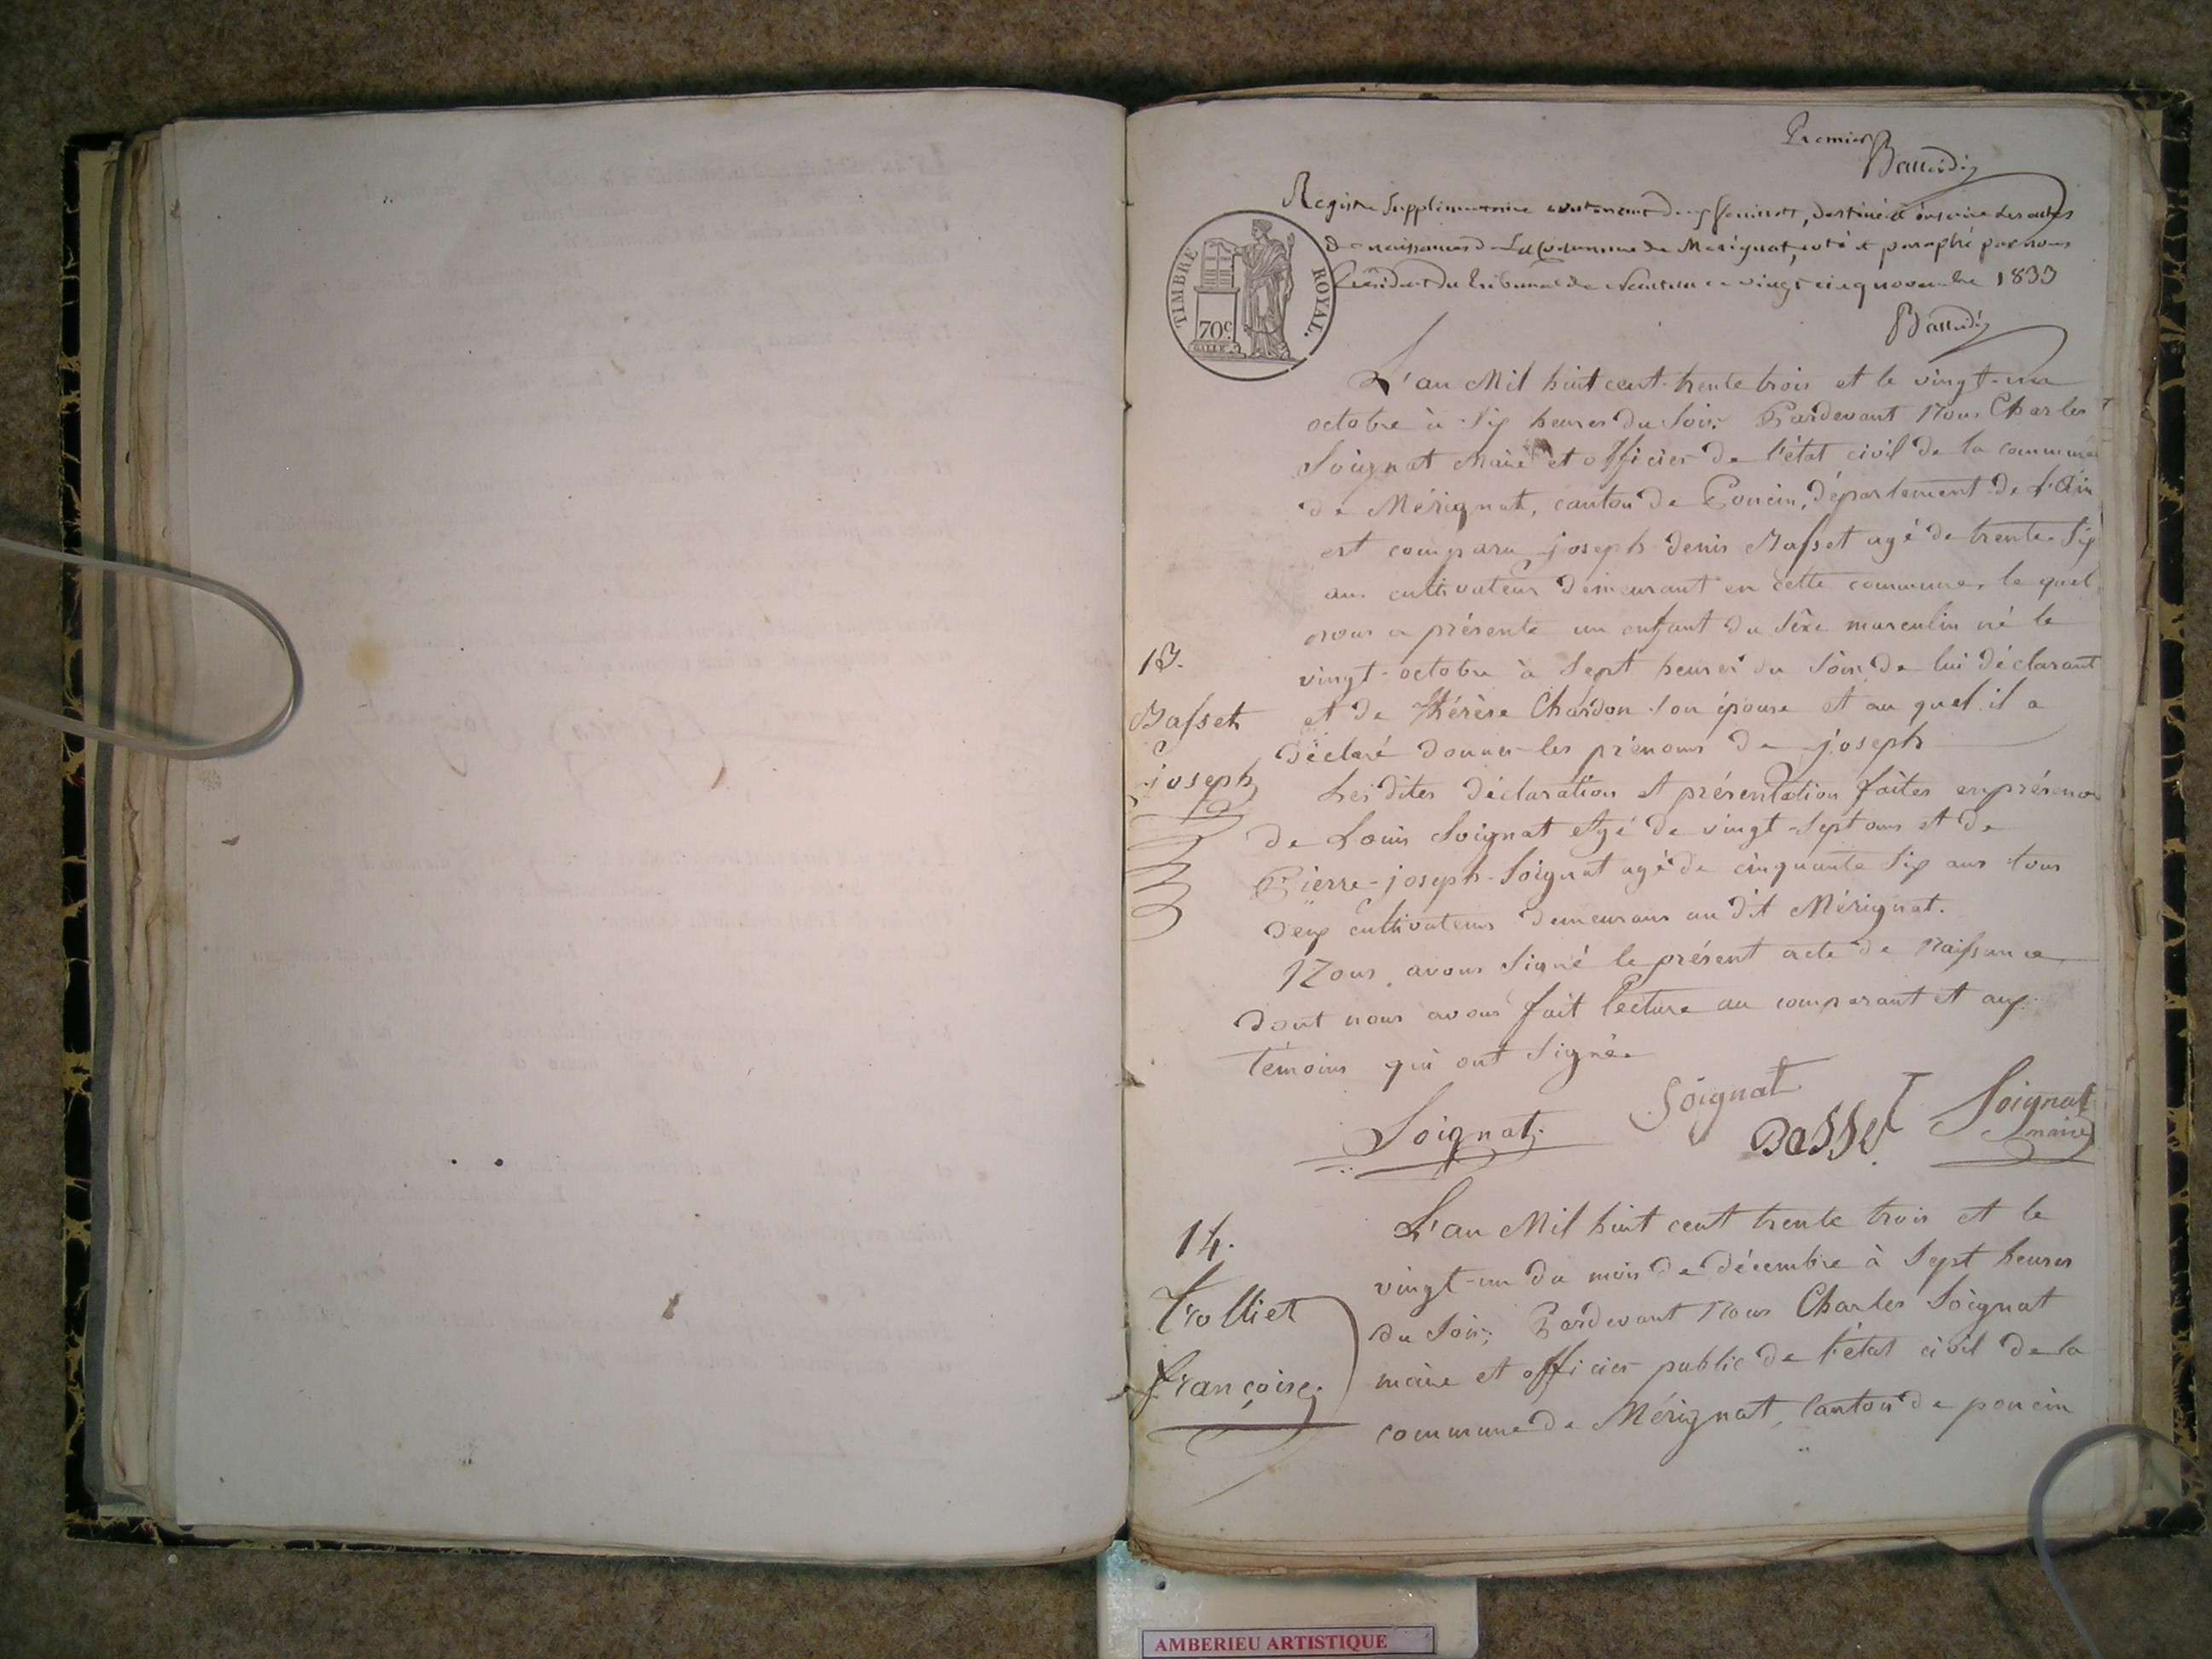 Premier
Registre Supplémentaire contenant deux feuillets, destiné à inscrire les actes
de naissances de La Commune de Mérignat, coté et paraphé par nous
Président du Tribunal de Nantua ce vingt cinq novembre 1833
TIMBRE ROYAL.
70c
L'an Mil huit cent trente trois et le vingt-un
octobre à Six heures du Soir. Pardevant Nous Charles
Soignat Maire et officier de l'état civil de la commune
de Mérignat, canton de Poncin, département de l'Ain
est comparu joseph denis Basset agé de trente Six
ans cultivateur demeurant en cette commune, le quel
nous a présenté un enfant du Sexe masculin né le
vingt octobre à Sept heures du Soir, de lui déclarant
et de thérèse Chardon Son épouse et au quel il a
déclaré donner les prénoms de joseph
Les dites déclaration et présentation faites en présence
de Louis Soignat Agé de vingt-Sept ans et de
Pierre-joseph-Soignat agé de cinquante Six ans tous
deux cultivateurs demeurans au dit Mérignat.
Nous avons Signé le présent acte de Naissance
dont nous avons fait lecture au comparant et aux
témoins qui ont Signé.
13.
Basset
joseph
Soignat
Soignat
Basset
Soignat
maire
14.
Trolliet
françoise
L'an Mil huit cent trente trois et le
vingt-un du mois de décembre à Sept heures
du Soir, Pardevant Nous Charles Soignat
maire et officier public de l'état civil de la
commune de Mérignat, Canton de poncin
AMBERIEU ARTISTIQUE